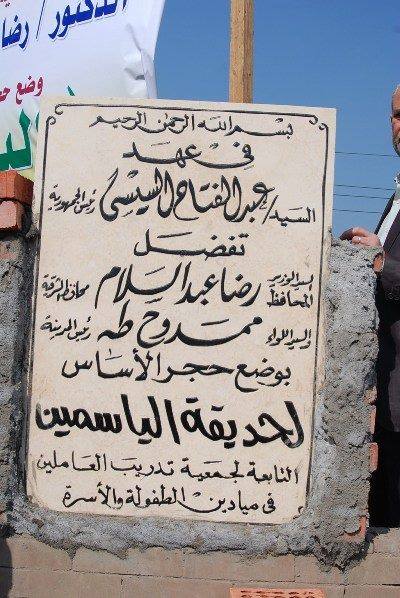 الدكتور / رضا
وضع
بسم الله الرحمن الرحيم
في عهد
السيد/ عبد الفتاح السيسي رئيس الجمهورية
تفضل
السيد الوزير المحافظ رضا عبد السلام محافظ الشرقية
والسيد اللواء ممدوح طه رئيس المدينة
بوضع حجر الأساس
لحديقة الياسمين
التابعة لجمعية تدريب العاملين
في ميادين الطفولة والأسرة